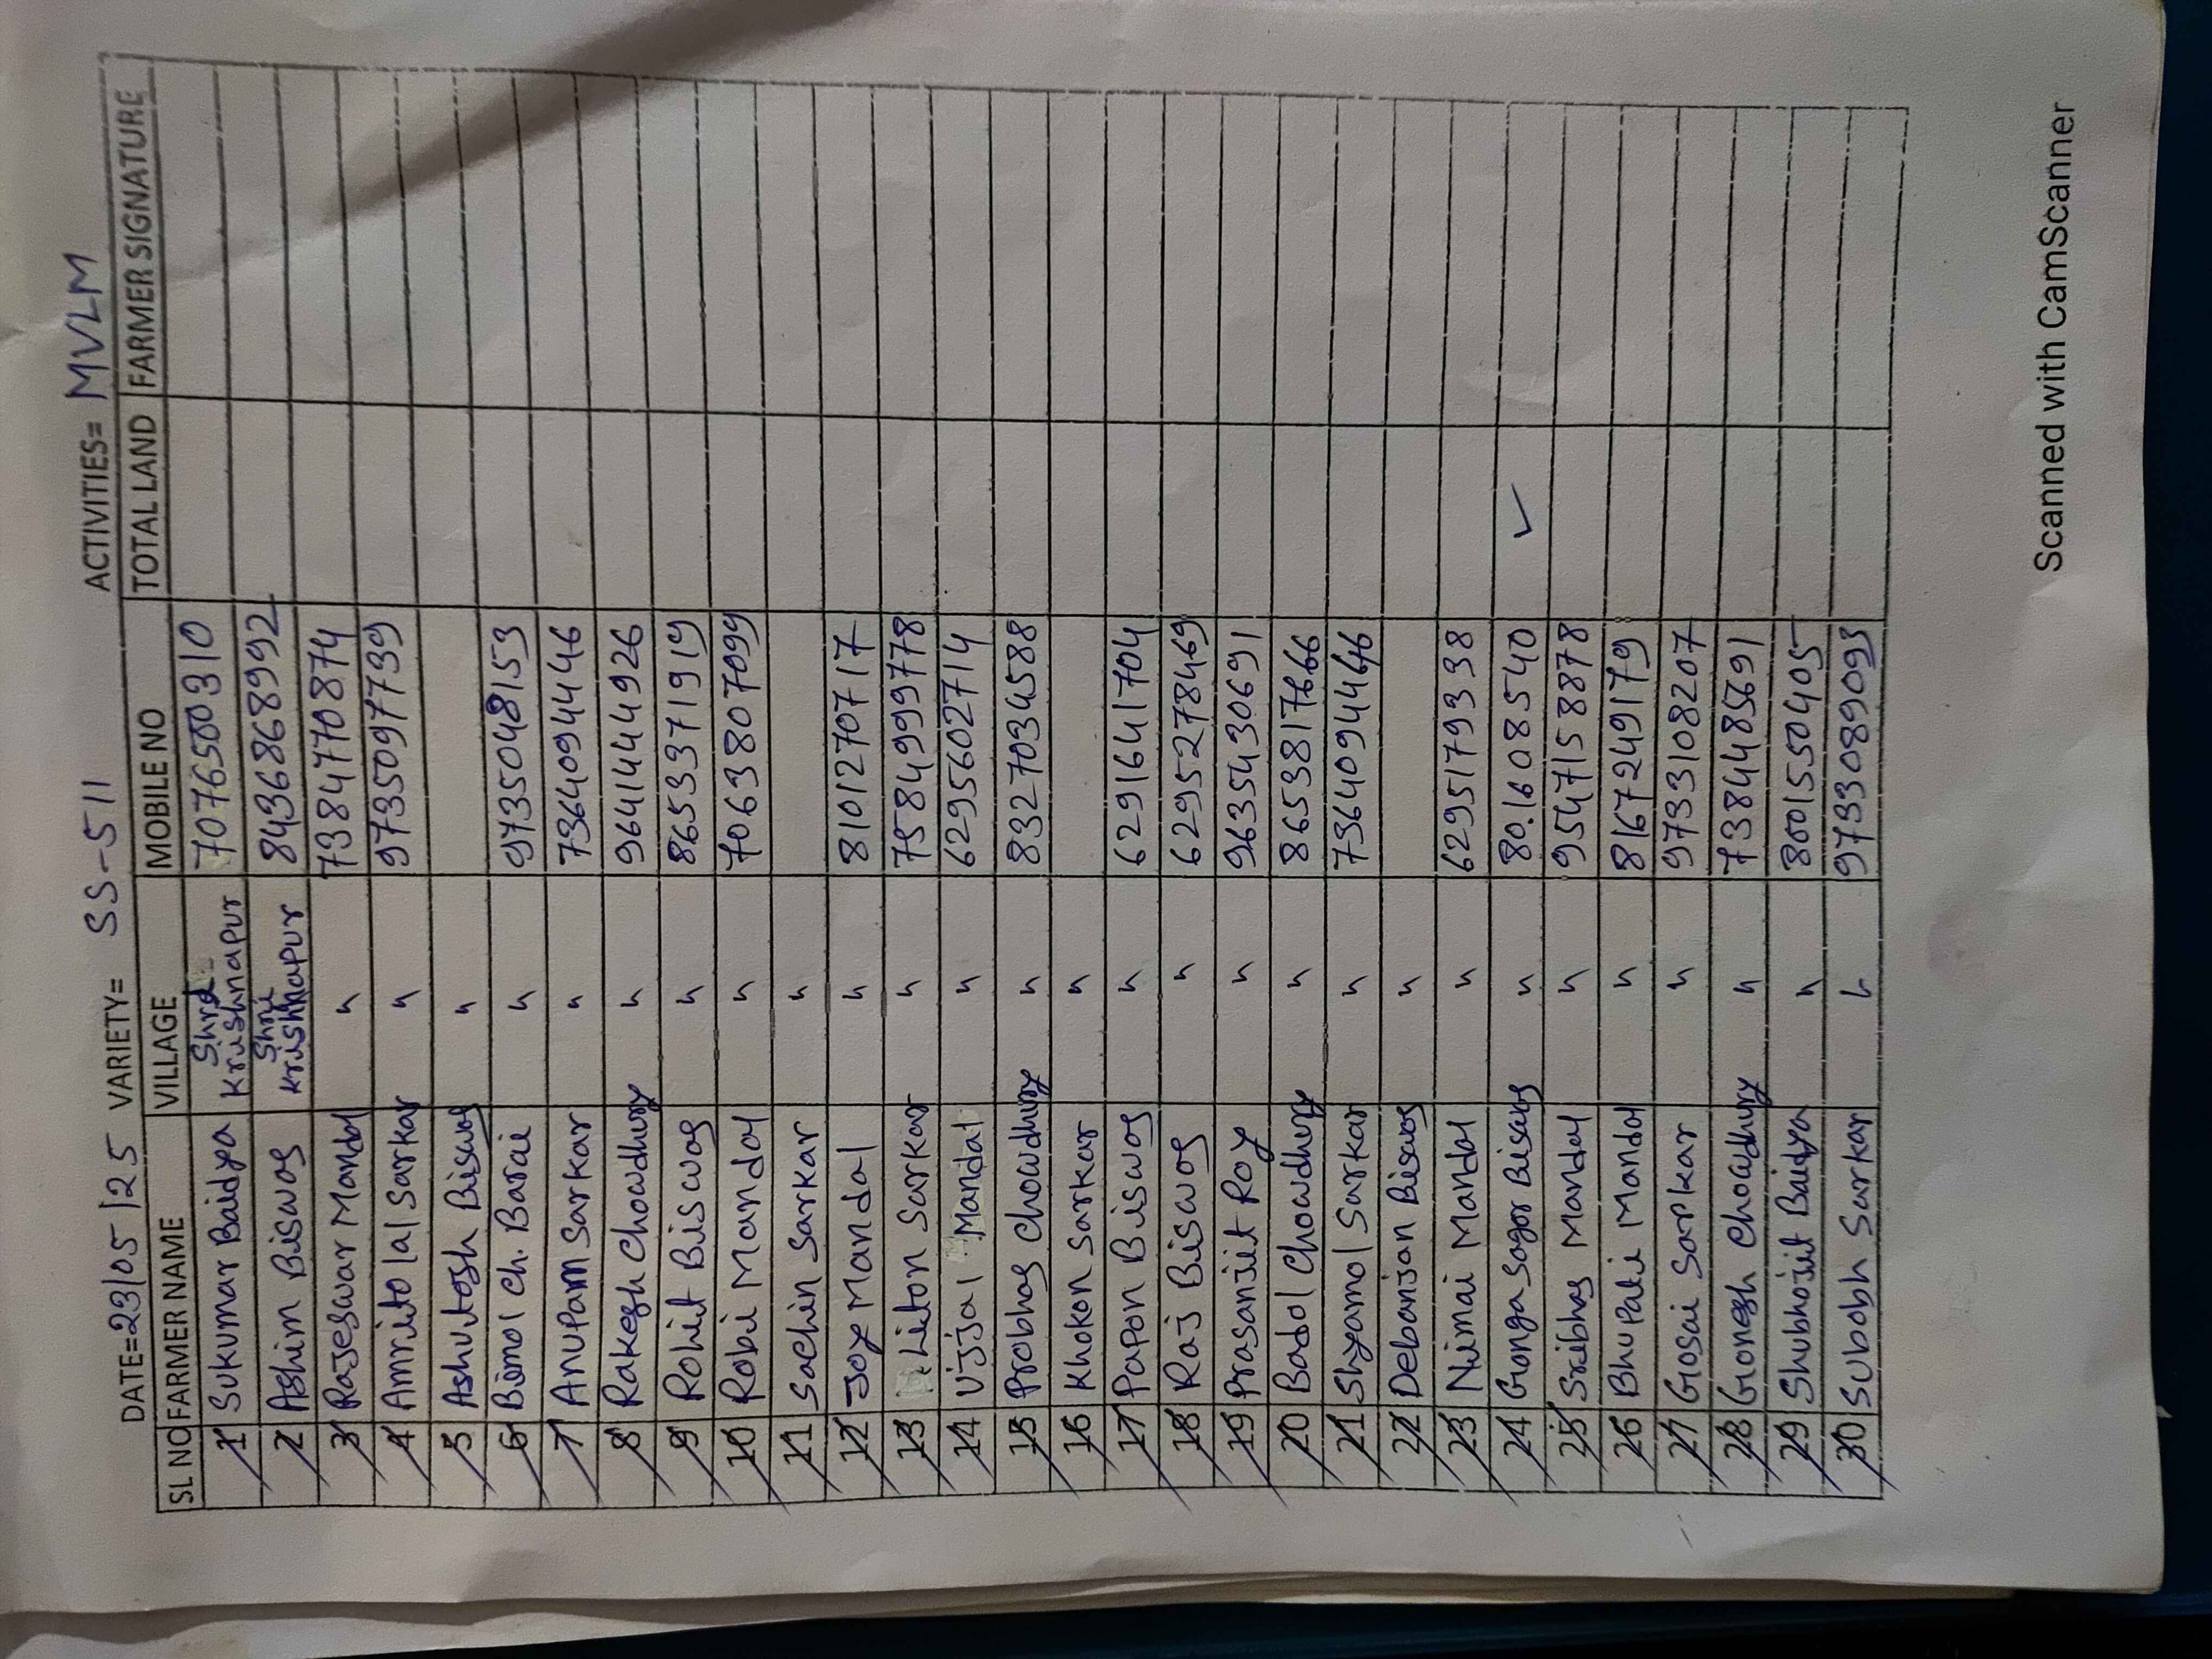 DATE=23/05/25 VARIETY= SS-511 ACTIVITIES= MVLM
SL NO FARMER NAME VILLAGE MOBILE NO TOTAL LAND FARMER SIGNATURE
1 Sukumar Baidya Shri Krishnapur 7076500310
2 Ashim Biswas Shri Krishnapur 8436868992
3 Rajeswar Mandal " 7384770874
4 Amrito lal Sarkar " 9735097739
5 Ashutosh Biswas "
6 Bimol Ch. Barai " 9735048153
7 Anupam Sarkar " 7364094446
8 Rakesh Chowdhury " 9641444926
9 Rohit Biswas " 8653371919
10 Robi Mandal " 7063807099
11 Sachin Sarkar "
12 Joy Mandal " 8101270717
13 Liton Sarkar " 7584999778
14 Vijjal Mandal " 6295602714
15 Probhas Chowdhury " 8327034588
16 Khokon Sarkar "
17 Papon Biswas " 6291641704
18 Raj Biswas " 6295278469
19 Prasanjit Roy " 9635430691
20 Badol Chowdhury " 8653817666
21 Shyamol Sarkar " 7364094466
22 Debanjan Biswas "
23 Nimai Mandal " 6295179338
24 Gonga Sagor Biswas " 80.1608540 ✓
25 Sribhas Mandal " 9547158878
26 Bhupati Mandal " 8167249179
27 Gosai Sarkar " 9733108207
28 Gonesh Chowdhury " 7384485691
29 Shubhojit Baidya " 8001550405
30 Subodh Sarkar " 9733089093
Scanned with CamScanner